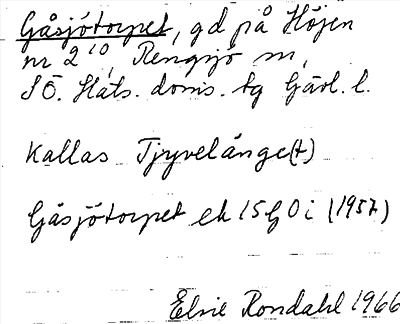 Gåsjötorpet, gd på Höjen
nr 2¹⁰, Rengsjö sn,
SÖ. Häls. doms. tg Gävl. l.
Kallas Tjyvelänge(t)
Gåsjötorpet ek 15G0i (1957)
Elsie Rondahl 1966